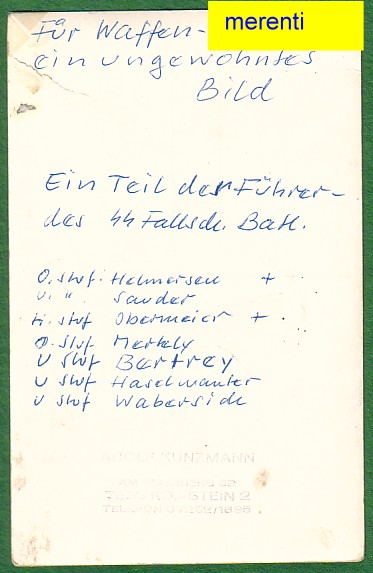 merenti
Für Waffen-
ein ungewohntes
Bild
Ein Teil der Führer-
des SS Fallsch. Batl.
O. Stuf. Helmersen +
U. " Sander
H. Stuf Obermeier +
O. Stuf Merkely
U Stuf Bartrey
U Stuf Haselwanter
U Stuf Waberside
KUNZMANN
STEIN 2
TELEFON 07252/1696